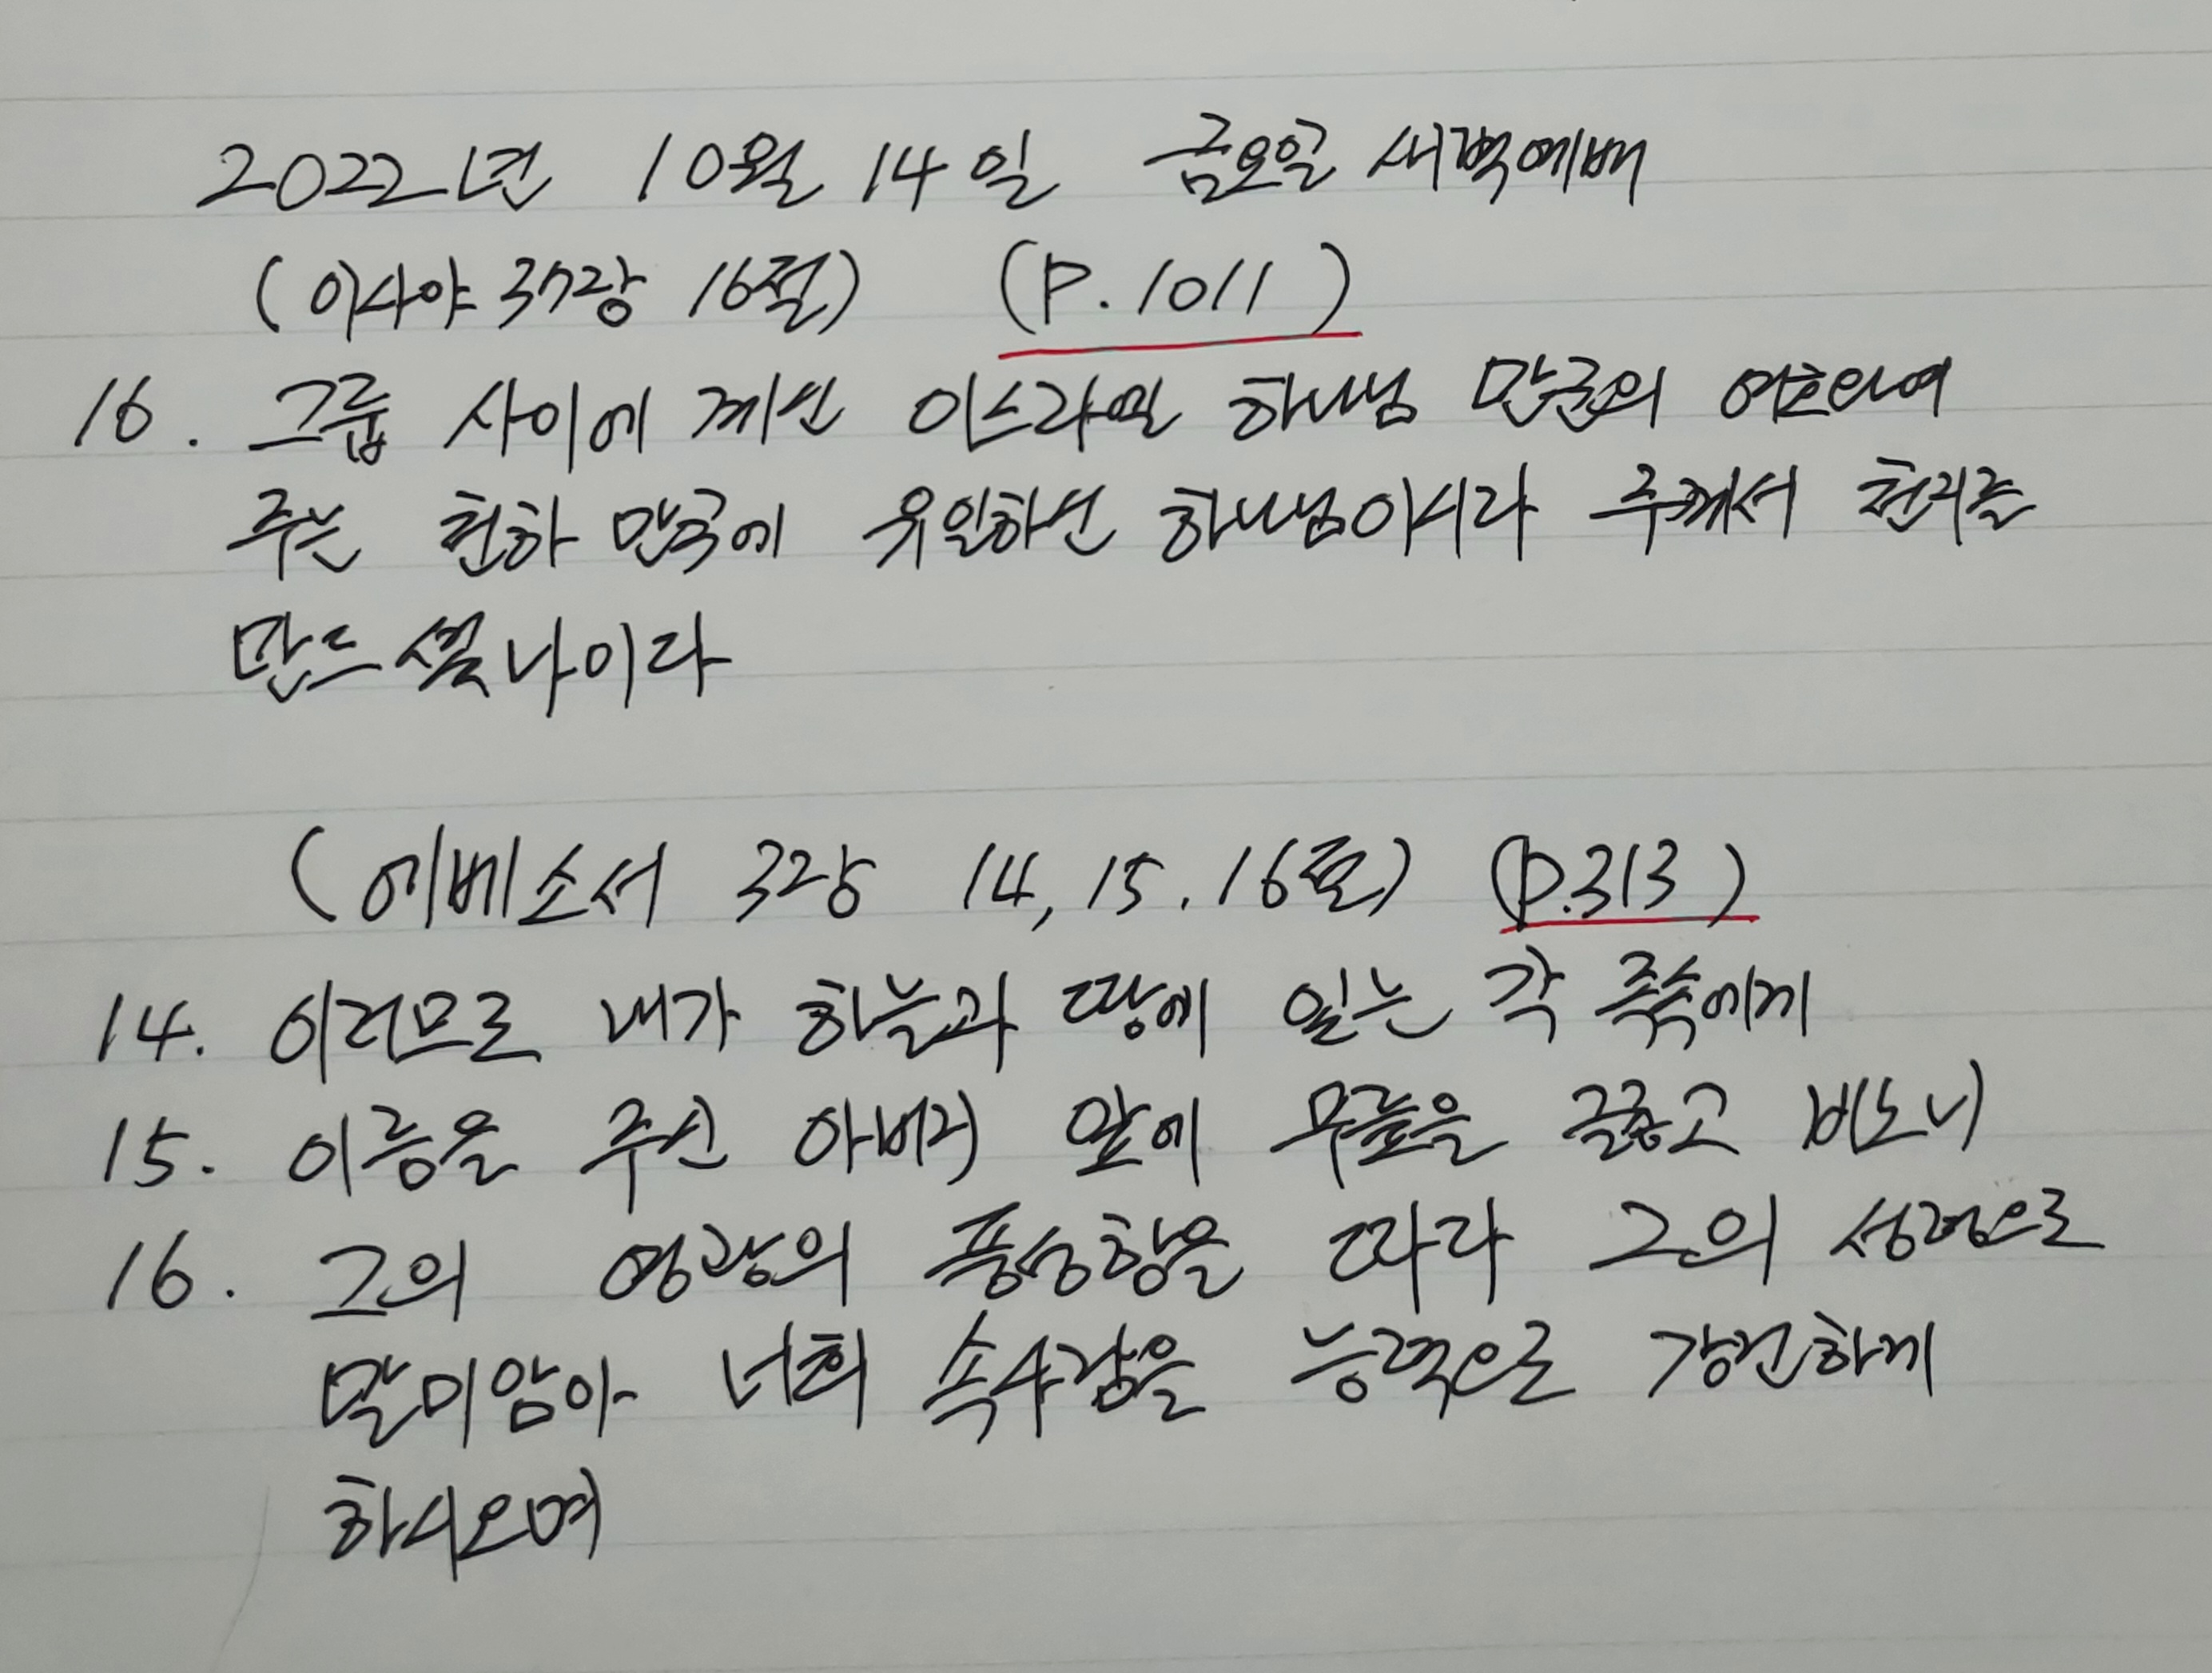 2022년 10월 14일 금요일 새벽예배
(이사야 37장 16절) (P.1011)
16. 그룹 사이에 계신 이스라엘 하나님 만군의 여호와여
주는 천하 만국에 유일하신 하나님이시라 주께서 천지를
만드셨나이다
(에베소서 3장 14, 15. 16절) (P.313)
14. 이러므로 내가 하늘과 땅에 있는 각 족속에게
15. 이름을 주신 아버지 앞에 무릎을 꿇고 비노니
16. 그의 영광의 풍성함을 따라 그의 성령으로
말미암아 너희 속사람을 능력으로 강건하게
하시오며